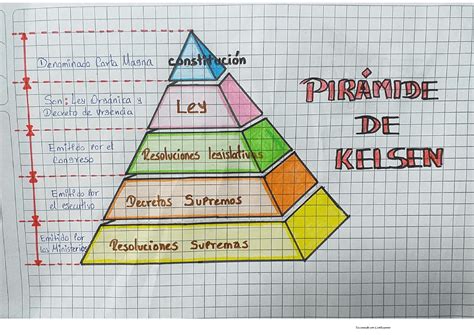 Denominado Carta Magna
constitución
Son: Ley Organika y
Decreto de Urgencia
Ley
Emitido por el
Congreso
Resoluciones legislativas
Emitido por
el esecutivo
Decretos Supremos
Emitido por
los Ministerios
Resoluciones Supremas
PIRÁMIDE
DE
KELSEN